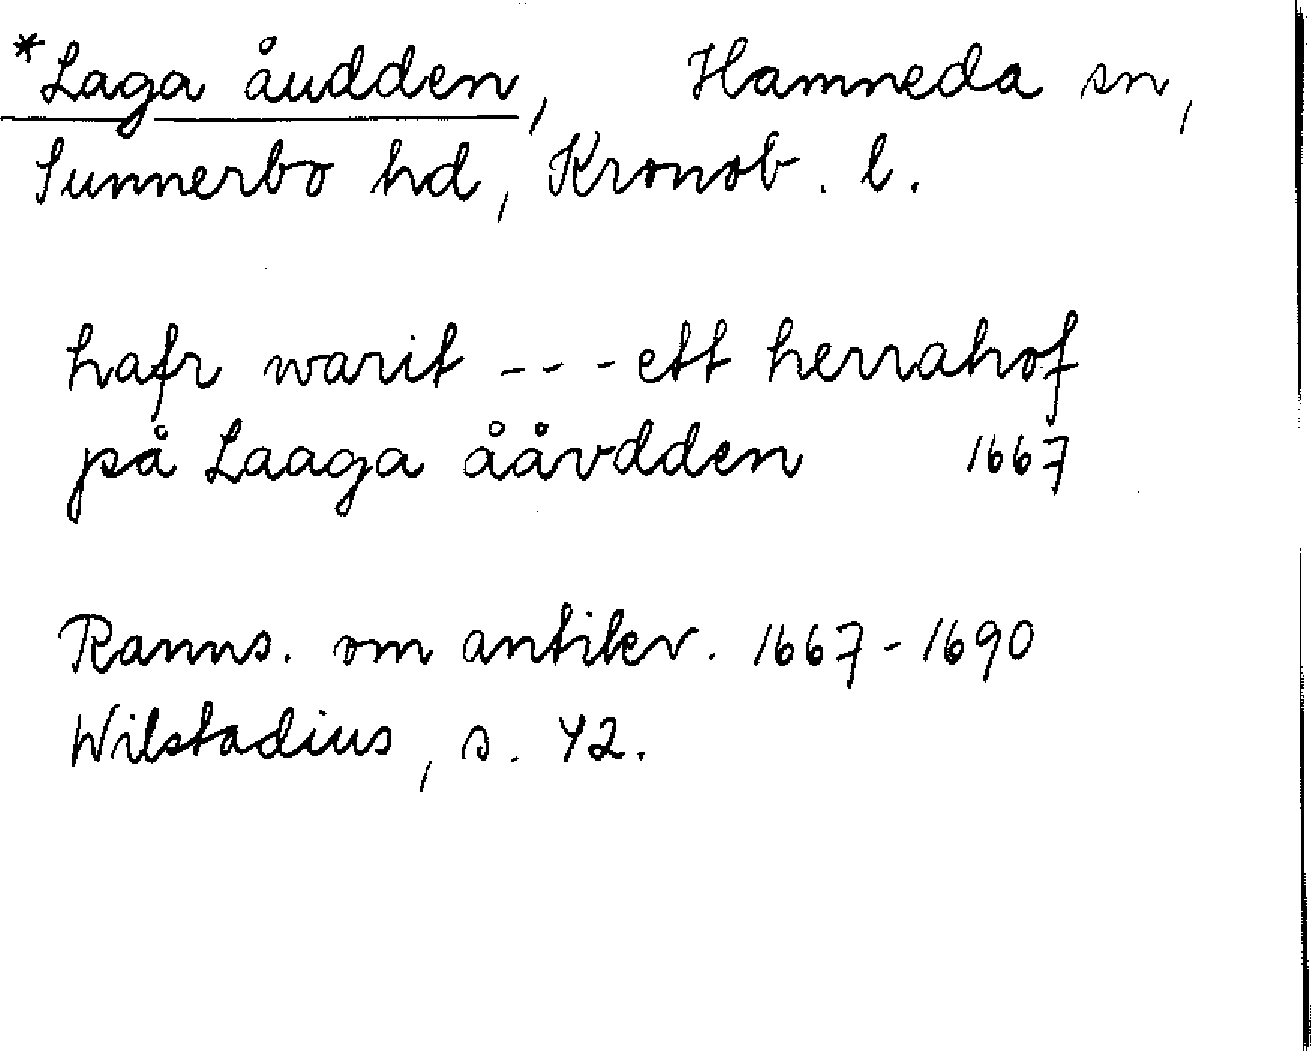 *Laga åudden, Hamneda sn,
Sunnerbo hd, Kronob. l.
hafr warit --- ett herrahof
på Laaga åâvdden 1667
Ranns. om antikv. 1667-1690
Wilstadius, s. 42.